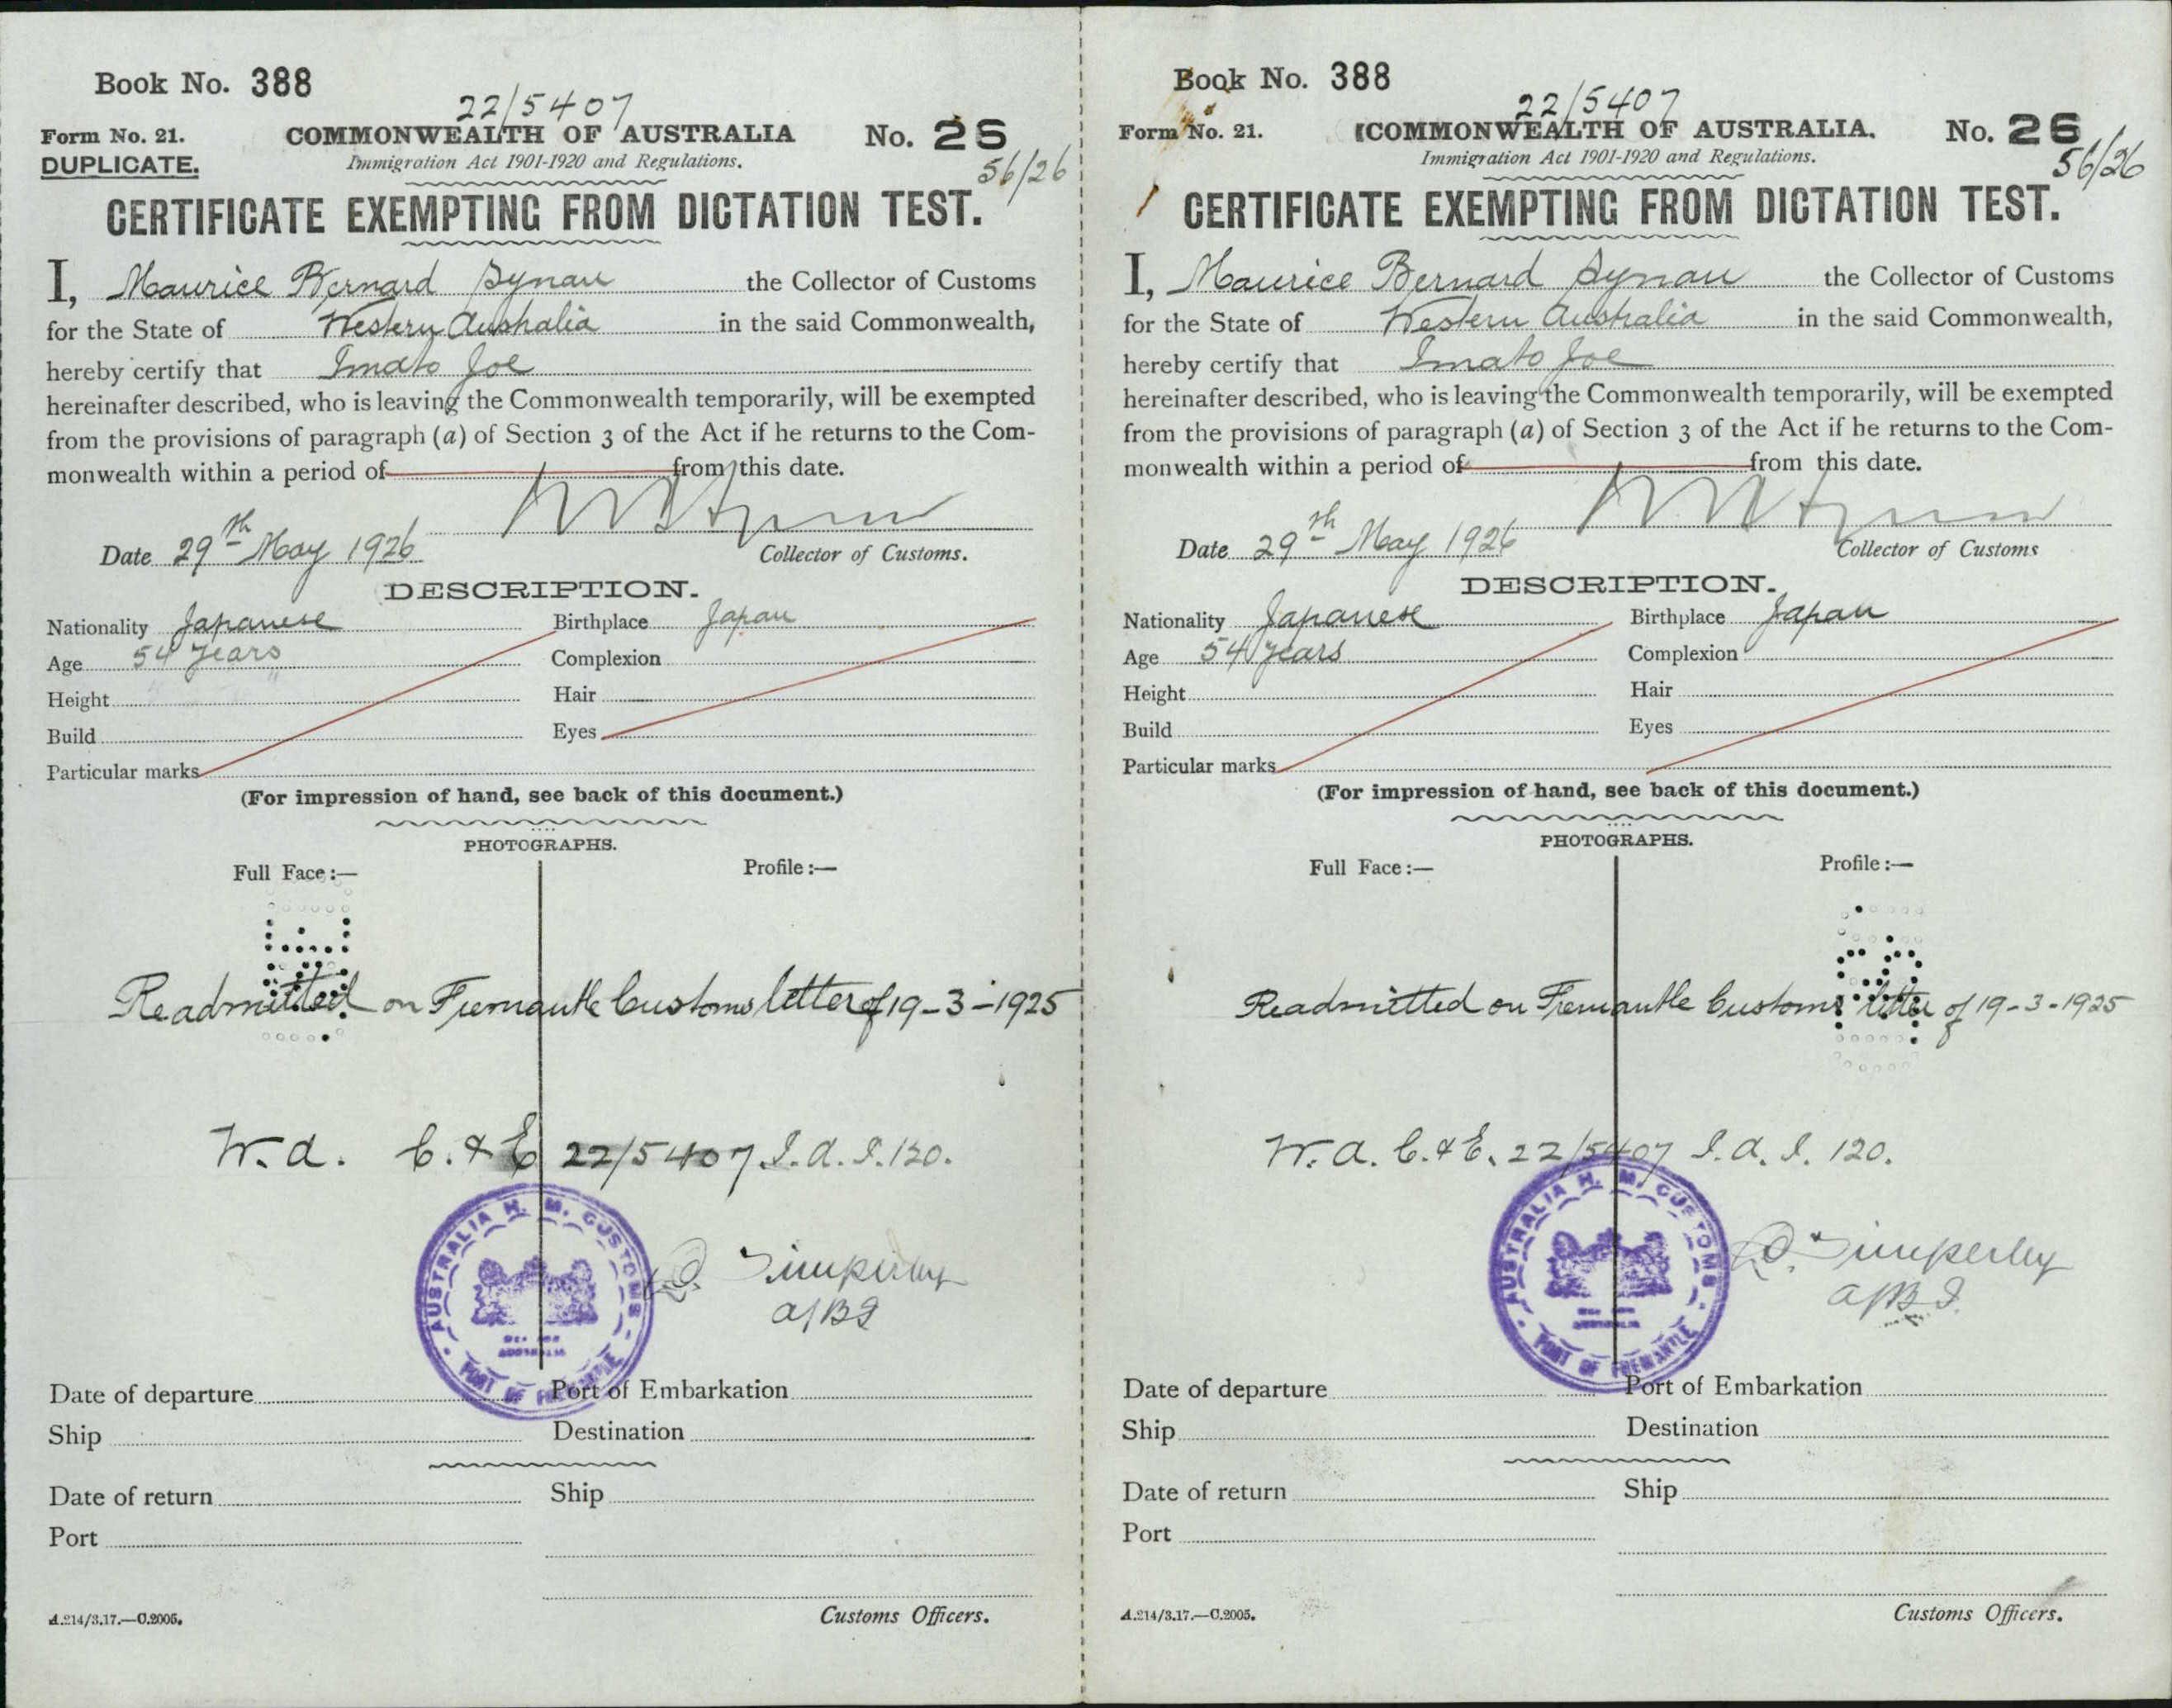 Book No. 388
22/5407
Form No. 21. COMMONWEALTH OF AUSTRALIA No. 26
DUPLICATE. Immigration Act 1901-1920 and Regulations. 56/26
CERTIFICATE EXEMPTING FROM DICTATION TEST.
I, Maurice Bernard Synan the Collector of Customs
for the State of Western Australia in the said Commonwealth,
hereby certify that Imato Joe
hereinafter described, who is leaving the Commonwealth temporarily, will be exempted
from the provisions of paragraph (a) of Section 3 of the Act if he returns to the Com-
monwealth within a period of from this date.
Date 29th May 1926 Collector of Customs.
DESCRIPTION.
Nationality Japanese Birthplace Japan
Age 54 years Complexion
Height Hair
Build Eyes
Particular marks
(For impression of hand, see back of this document.)
PHOTOGRAPHS.
Full Face:— Profile:—
Readmitted on Fremantle Customs letter of 19-3-1925
W.A. C.&E 22/5407 I.A.I. 120.
AUSTRALIA H. M. CUSTOMS
PORT OF FREMANTLE
Date of departure Port of Embarkation
Ship Destination
Date of return Ship
Port
A.214/3.17.—C.2005. Customs Officers.
Book No. 388
22/5407
Form No. 21. COMMONWEALTH OF AUSTRALIA. No. 26
Immigration Act 1901-1920 and Regulations. 56/26
CERTIFICATE EXEMPTING FROM DICTATION TEST.
I, Maurice Bernard Synan the Collector of Customs
for the State of Western Australia in the said Commonwealth,
hereby certify that Imato Joe
hereinafter described, who is leaving the Commonwealth temporarily, will be exempted
from the provisions of paragraph (a) of Section 3 of the Act if he returns to the Com-
monwealth within a period of from this date.
Date 29th May 1926 Collector of Customs
DESCRIPTION.
Nationality Japanese Birthplace Japan
Age 54 years Complexion
Height Hair
Build Eyes
Particular marks
(For impression of hand, see back of this document.)
PHOTOGRAPHS.
Full Face:— Profile:—
Readmitted on Fremantle Customs letter of 19-3-1925
W.A. C.&E. 22/5407 I.A.I. 120.
AUSTRALIA H. M. CUSTOMS
PORT OF FREMANTLE
Date of departure Port of Embarkation
Ship Destination
Date of return Ship
Port
A.214/3.17.—C.2005. Customs Officers.